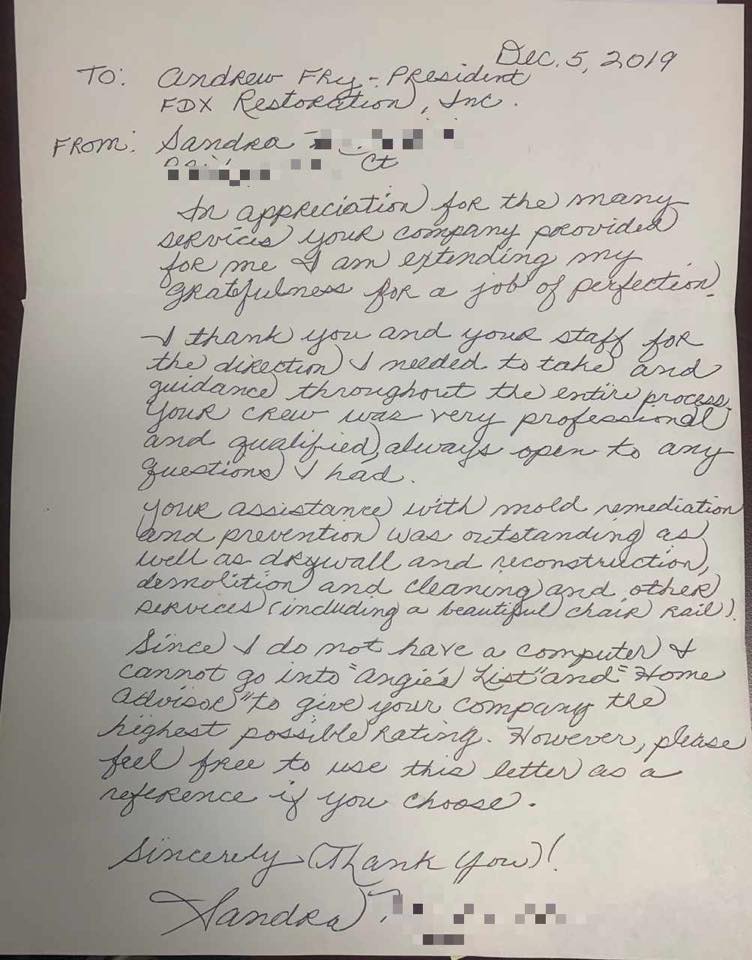 Dec. 5, 2019
TO: Andrew Fry - President
FDX Restoration, Inc.
FROM: Sandra
Ct
In appreciation for the many
services your company provided
for me I am extending my
gratefulness for a job of perfection.
I thank you and your staff for
the direction I needed to take and
guidance throughout the entire process.
Your crew was very professional
and qualified, always open to any
questions I had.
Your assistance with mold remediation
and prevention was outstanding as
well as drywall and reconstruction,
demolition and cleaning and other
services (including a beautiful chair rail).
Since I do not have a computer I
cannot go into "Angie's List" and "Home
Advisor" to give your company the
highest possible rating. However, please
feel free to use this letter as a
reference if you choose.
Sincerely (Thank You)!
Sandra